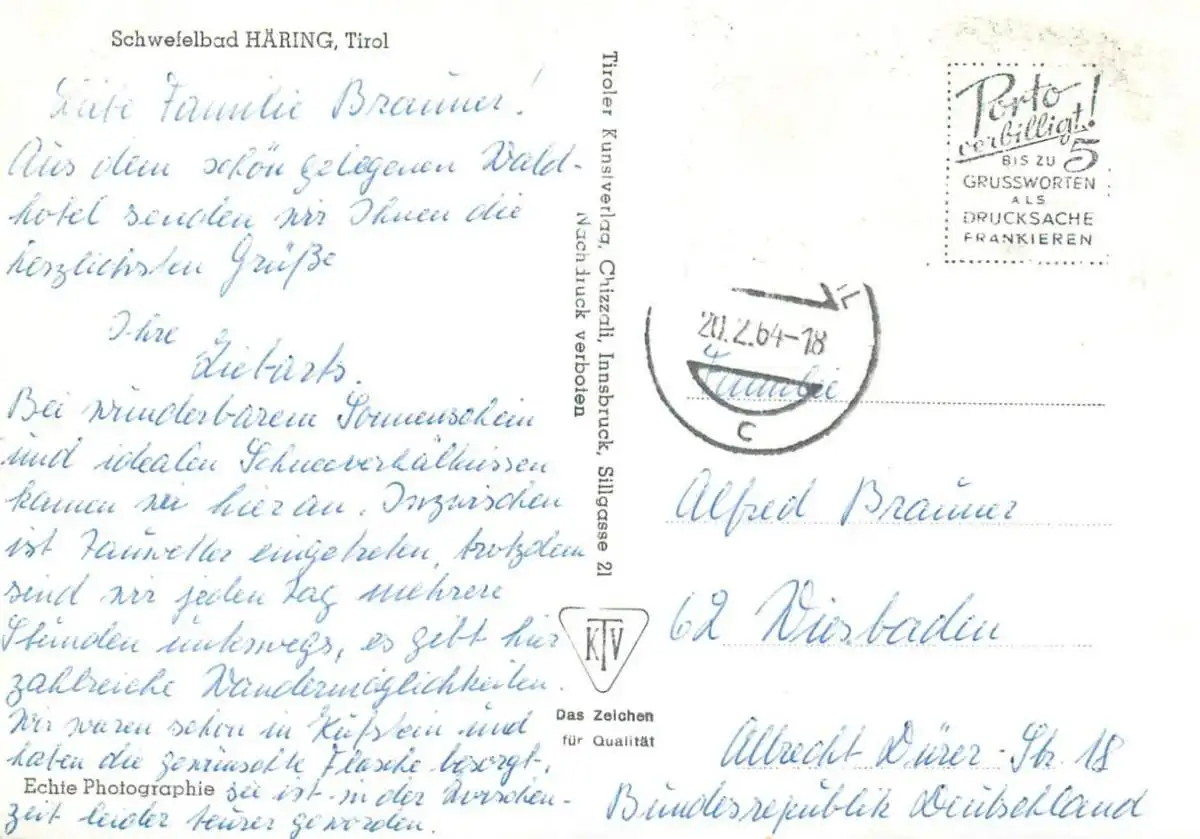 Schwefelbad HÄRING, Tirol
Familie Brauner!
Aus dem schön gelegenen Wald-
hotel senden wir Ihnen die
herzlichsten Grüße
Ihre
Liebarts.
Bei wunderbarem Sonnenschein
und idealen Schneeverhältnissen
kamen wir hier an. Inzwischen
ist Tauwetter eingetreten, trotzdem
sind wir jeden Tag mehrere
Stunden unterwegs, es gibt hier
zahlreiche Wandermöglichkeiten.
Wir waren schon in Kufstein und
haben die gewünschte Flasche besorgt,
Echte Photographie
sie ist in der Zwischen-
zeit leider teurer geworden.
Tiroler Kunstverlag, Chizzali, Innsbruck, Sillgasse 21
Nachdruck verboten
KTV
Das Zeichen
für Qualität
Porto
verbilligt!
BIS ZU 5
GRUSSWORTEN
ALS
DRUCKSACHE
FRANKIEREN
20.2.64-18
C
Familie
Alfred Brauner
62 Wiesbaden
Albrecht Dürer-Str. 18
Bundesrepublik Deutschland